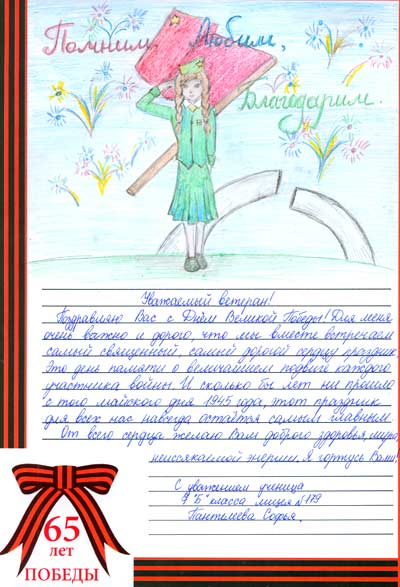 Помним, Любим,
Благодарим.
Уважаемый ветеран!
Поздравляю Вас с Днём Великой Победы! Для меня
очень важно и дорого, что мы вместе встречаем
самый священный, самый дорогой сердцу праздник.
Это день памяти о величайшем подвиге каждого
участника войны. И сколько бы лет ни прошло
с того майского дня 1945 года, этот праздник
для всех нас навсегда остаётся самым главным.
От всего сердца желаю Вам доброго здоровья, мира,
неиссякаемой энергии. Я горжусь Вами!
С уважением ученица
7 "Б" класса лицея № 179
Пантелеева Софья.
65
лет
ПОБЕДЫ